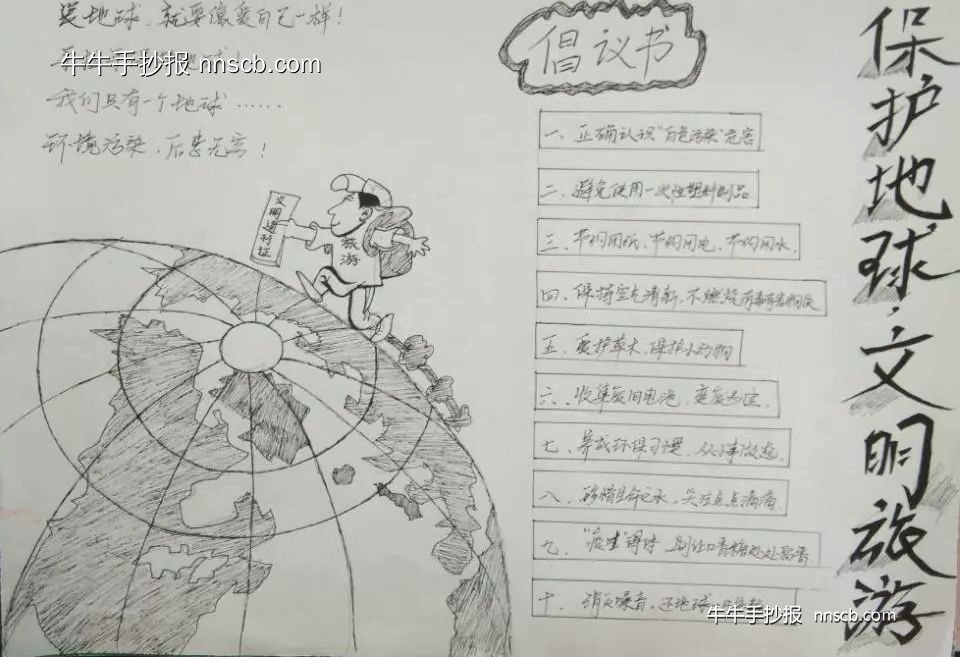 爱地球，就要像爱自己一样！
牛牛手抄报 nnscb.com
我们只有一个地球……
环境污染，后患无穷！
文明通行证
旅游
倡议书
一、正确认识"白色污染"危害
二、避免使用一次性塑料制品
三、节约用纸、节约用电、节约用水.
四、保持空气清新，不燃烧有毒有害物质
五、爱护草木，保护小动物
六、收集废旧电池，变废为宝.
七、养成环保习惯，从小事做起.
八、珍惜生命之水，关注点点滴滴
九、
十、消灭噪音，还地球
牛牛手抄报 nnscb.com
保护地球·文明旅游